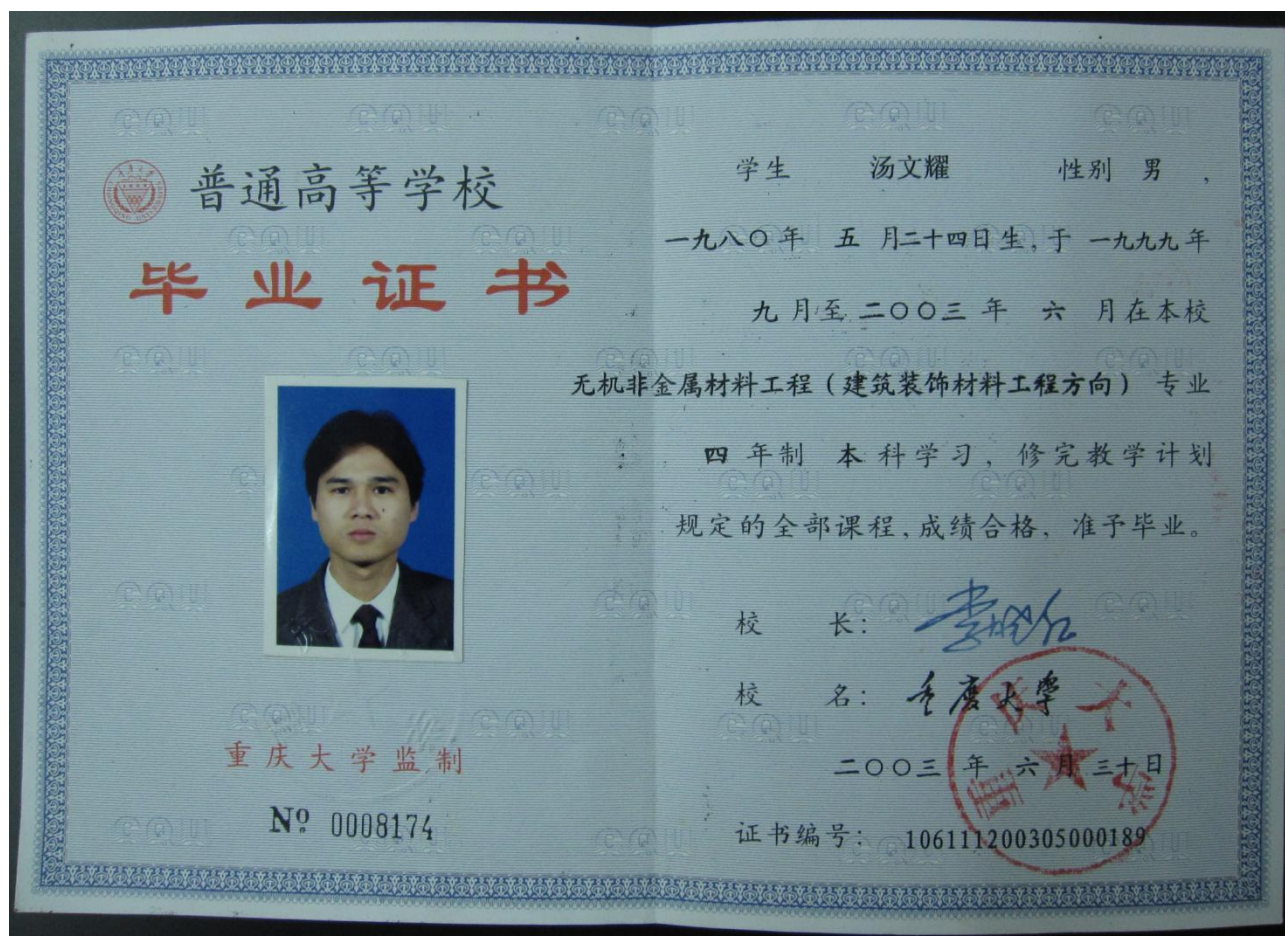 普通高等学校
毕业证书
重庆大学监制
Nº 0008174
学生 汤文耀 性别 男 ,
一九八〇年 五 月二十四日生,于 一九九九年
九 月至 二〇〇三 年 六 月在本校
无机非金属材料工程(建筑装饰材料工程方向) 专业
四 年制 本 科学习, 修完教学计划
规定的全部课程,成绩合格, 准予毕业。
校 长: 李晓红
校 名: 重庆大学
二〇〇三 年 六 月 三十日
证书编号: 106111200305000189
重庆大学
CQU